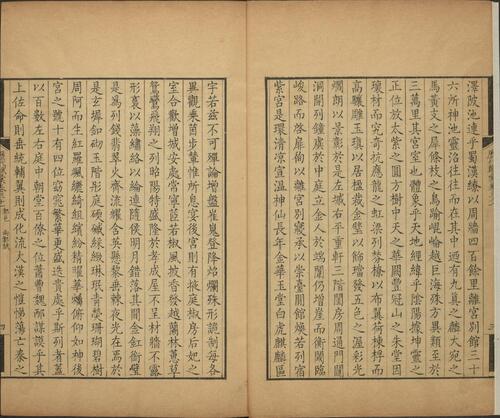 澤陂池連乎蜀漢繚以周牆四百餘里離宮別館三十
六所神池靈沼往往而在其中迺有九真之麟大宛之
馬黃支之犀條枝之鳥踰崐崘越巨海殊方異類至於
三萬里其宮室也體象乎天地經緯乎陰陽據坤靈之
正位放太紫之圓方樹中天之華闕豐冠山之朱堂因
瓌材而究奇抗應龍之虹梁列棼橑以布翼荷棟桴而
高驤雕玉瑱以居楹裁金璧以飾璫發五色之渥彩光
爓朗以景彰於是左墄右平重軒三階閨房周通門闥
洞開列鐘虡於中庭立金人於端闈仍增崖而衡閾臨
峻路而啓扉徇以離宮別寢承以崇臺閒館煥若列宿
紫宮是環清涼宣溫神仙長年金華玉堂白虎麒麟區
宇若茲不可殫論增盤崔嵬登降炤爛殊形詭制每各
異觀乘茵步輦惟所息宴後宮則有掖庭椒房后妃之
室合歡增城安處常寧茝若椒風披香發越蘭林蕙草
鴛鸞飛翔之列昭陽特盛隆於孝成屋不呈材牆不露
形裛以藻繡絡以綸連隨侯明月錯落其間金釭銜璧
是爲列錢翡翠火齊流耀含英懸黎垂棘夜光在焉於
是玄墀釦砌玉階彤庭碝磩綵緻琳珉青熒珊瑚碧樹
周阿而生紅羅颯纚綺組繽紛精曜華燭俯仰如神後
宮之號十有四位窈窕繁華更盛迭貴處乎斯列者蓋
以百數左右庭中朝堂百僚之位蕭曹魏邴謀謨乎其
上佐命則垂統輔翼則成化流大漢之愷悌蕩亡秦之